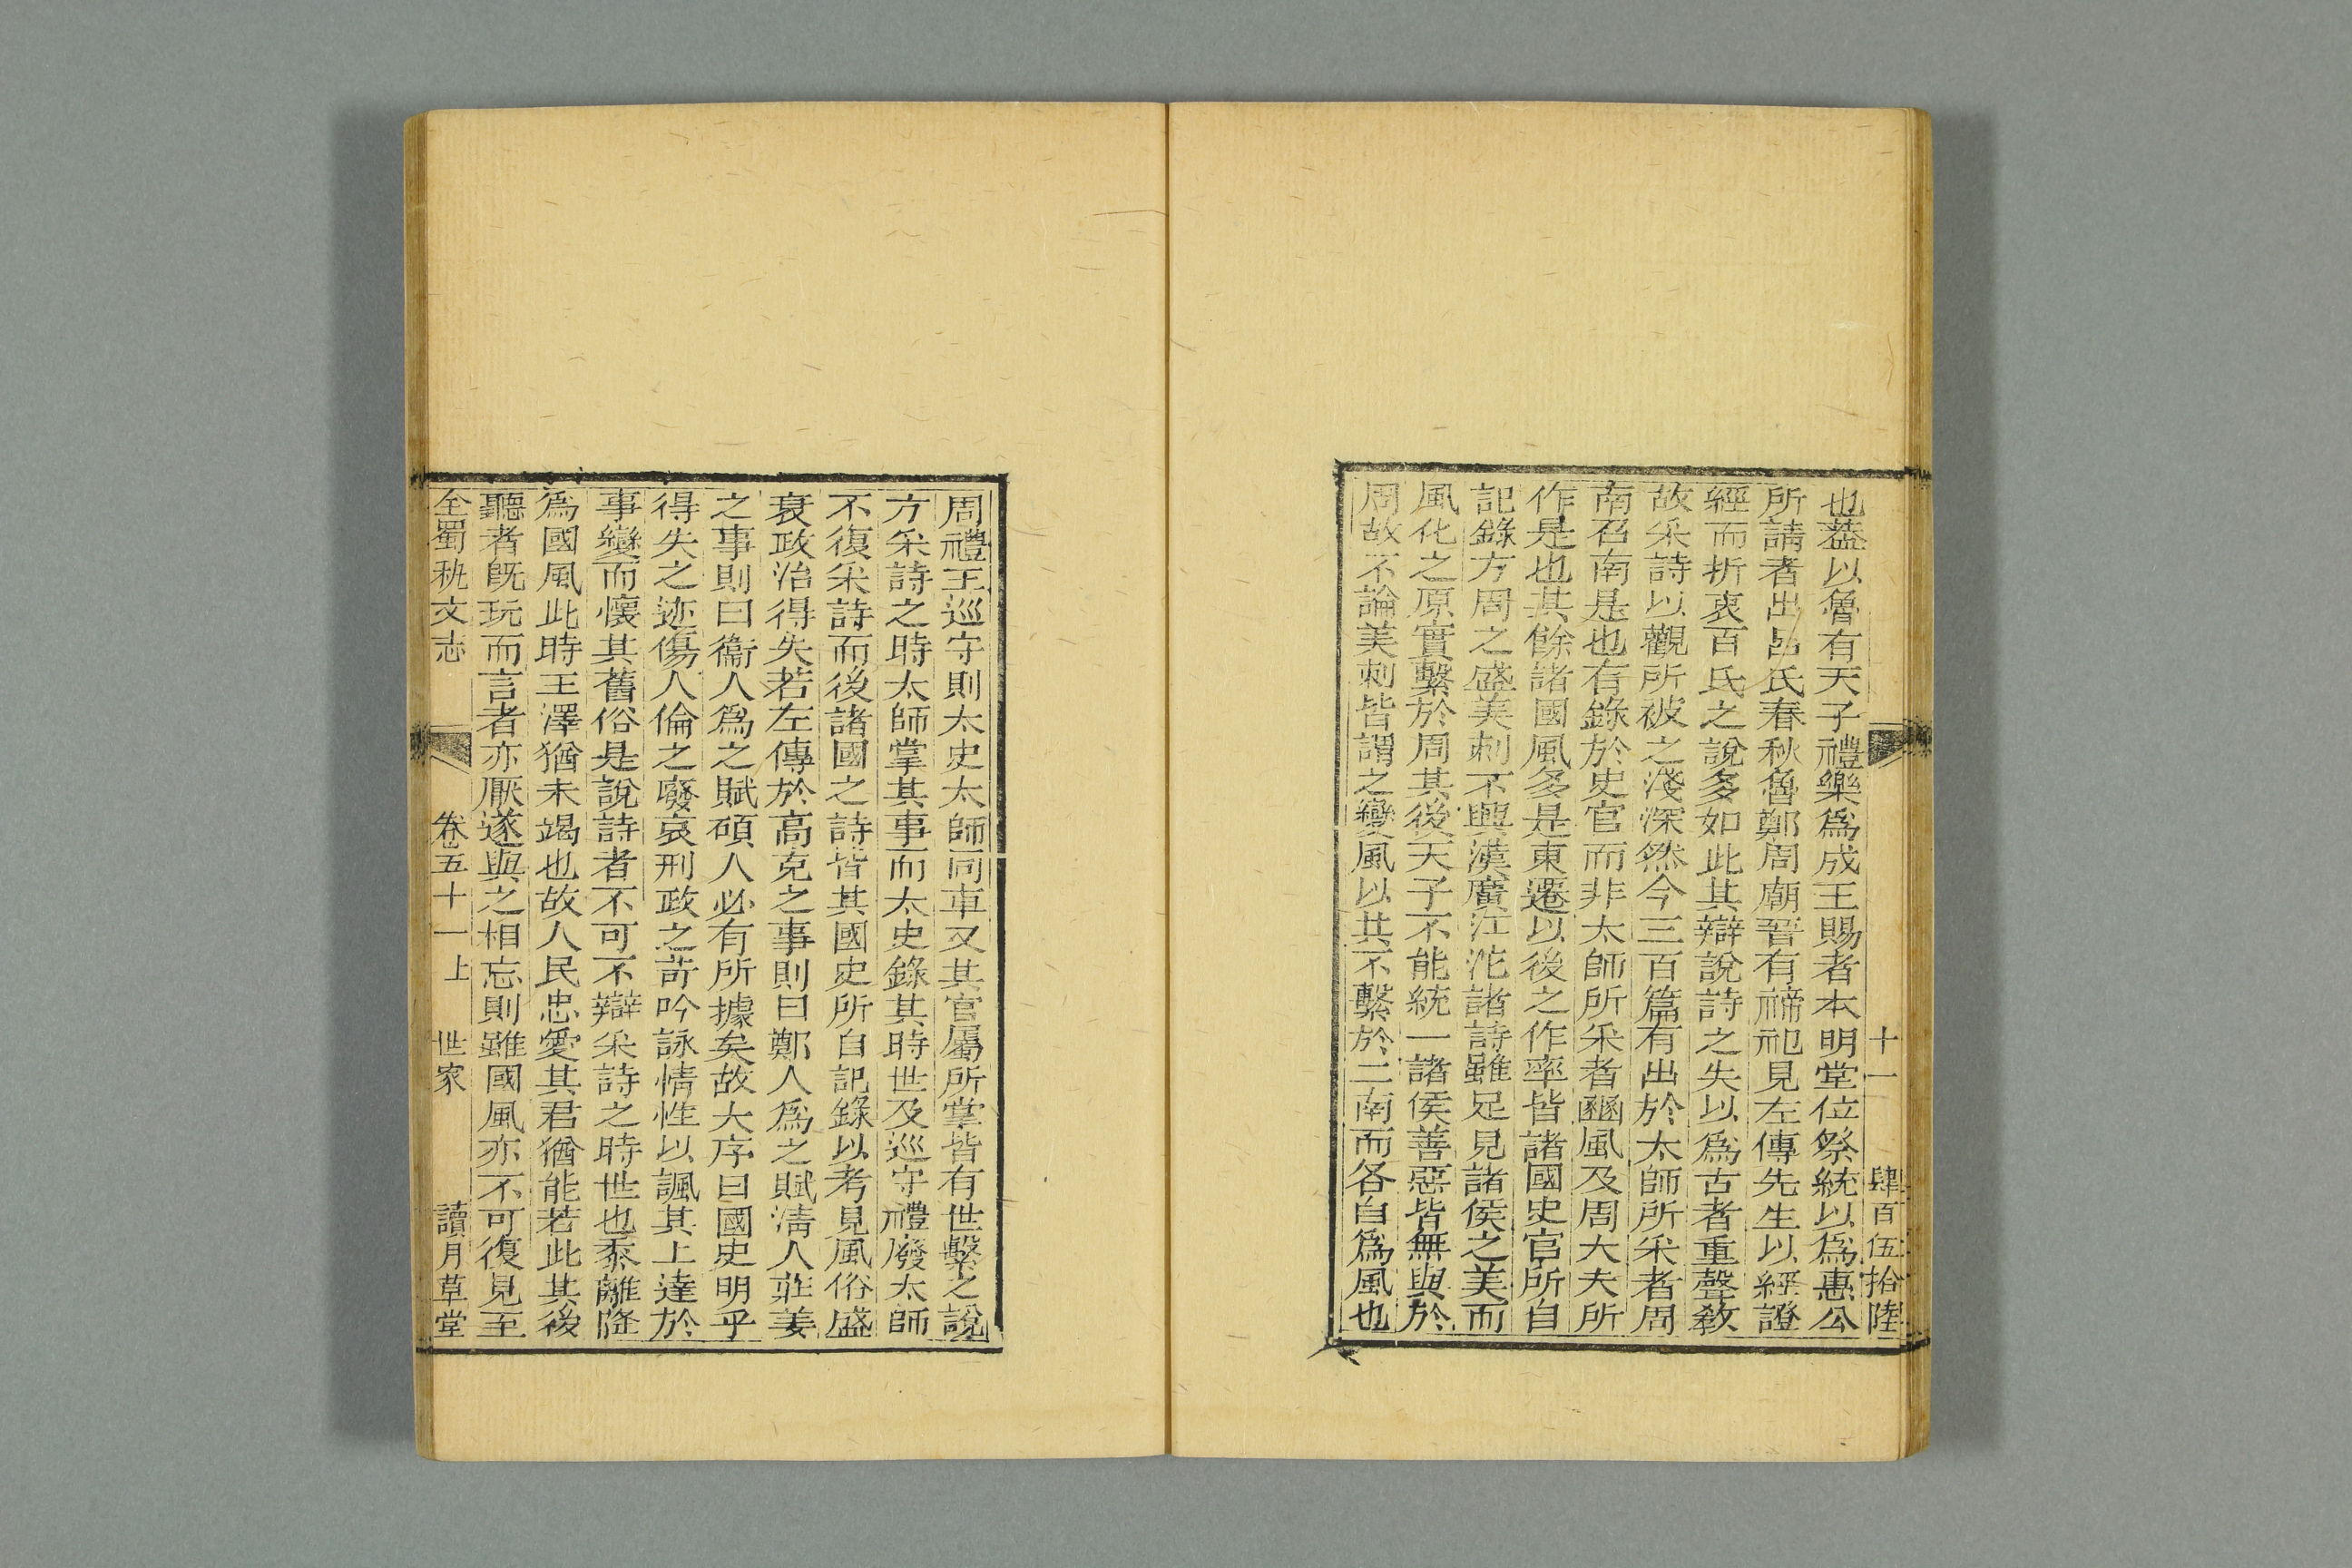 十一
肆百伍拾陸
也葢以魯有天子禮樂爲成王賜者本明堂位祭統以爲惠公
所請者出呂氏春秋魯鄭周廟晉有禘祀見左傳先生以經證
經而折衷百氏之說多如此其辯說詩之失以爲古者重聲敎
故采詩以觀所被之淺深然今三百篇有出於太師所采者周
南召南是也有錄於史官而非太師所采者豳風及周大夫所
作是也其餘諸國風多是東遷以後之作率皆諸國史官所自
記錄方周之盛美刺不興漢廣江沱諸詩雖足見諸侯之美而
風化之原實繫於周其後天子不能統一諸侯善惡皆無與於
周故不論美刺皆謂之變風以其不繫於二南而各自爲風也
周禮王巡守則太史太師同車又其官屬所掌皆有世繫之說
方采詩之時太師掌其事而太史錄其時世及巡守禮廢太師
不復采詩而後諸國之詩皆其國史所自記錄以考見風俗盛
衰政治得失若左傳於高克之事則曰鄭人爲之賦淸人莊姜
之事則曰衞人爲之賦碩人必有所據矣故大序曰國史明乎
得失之迹傷人倫之廢哀刑政之苛吟詠情性以諷其上達於
事變而懷其舊俗是說詩者不可不辯采詩之時世也黍離降
爲國風此時王澤猶未竭也故人民忠愛其君猶能若此其後
聽者旣玩而言者亦厭遂與之相忘則雖國風亦不可復見至
全蜀秇文志 卷五十一上 世家 讀月草堂